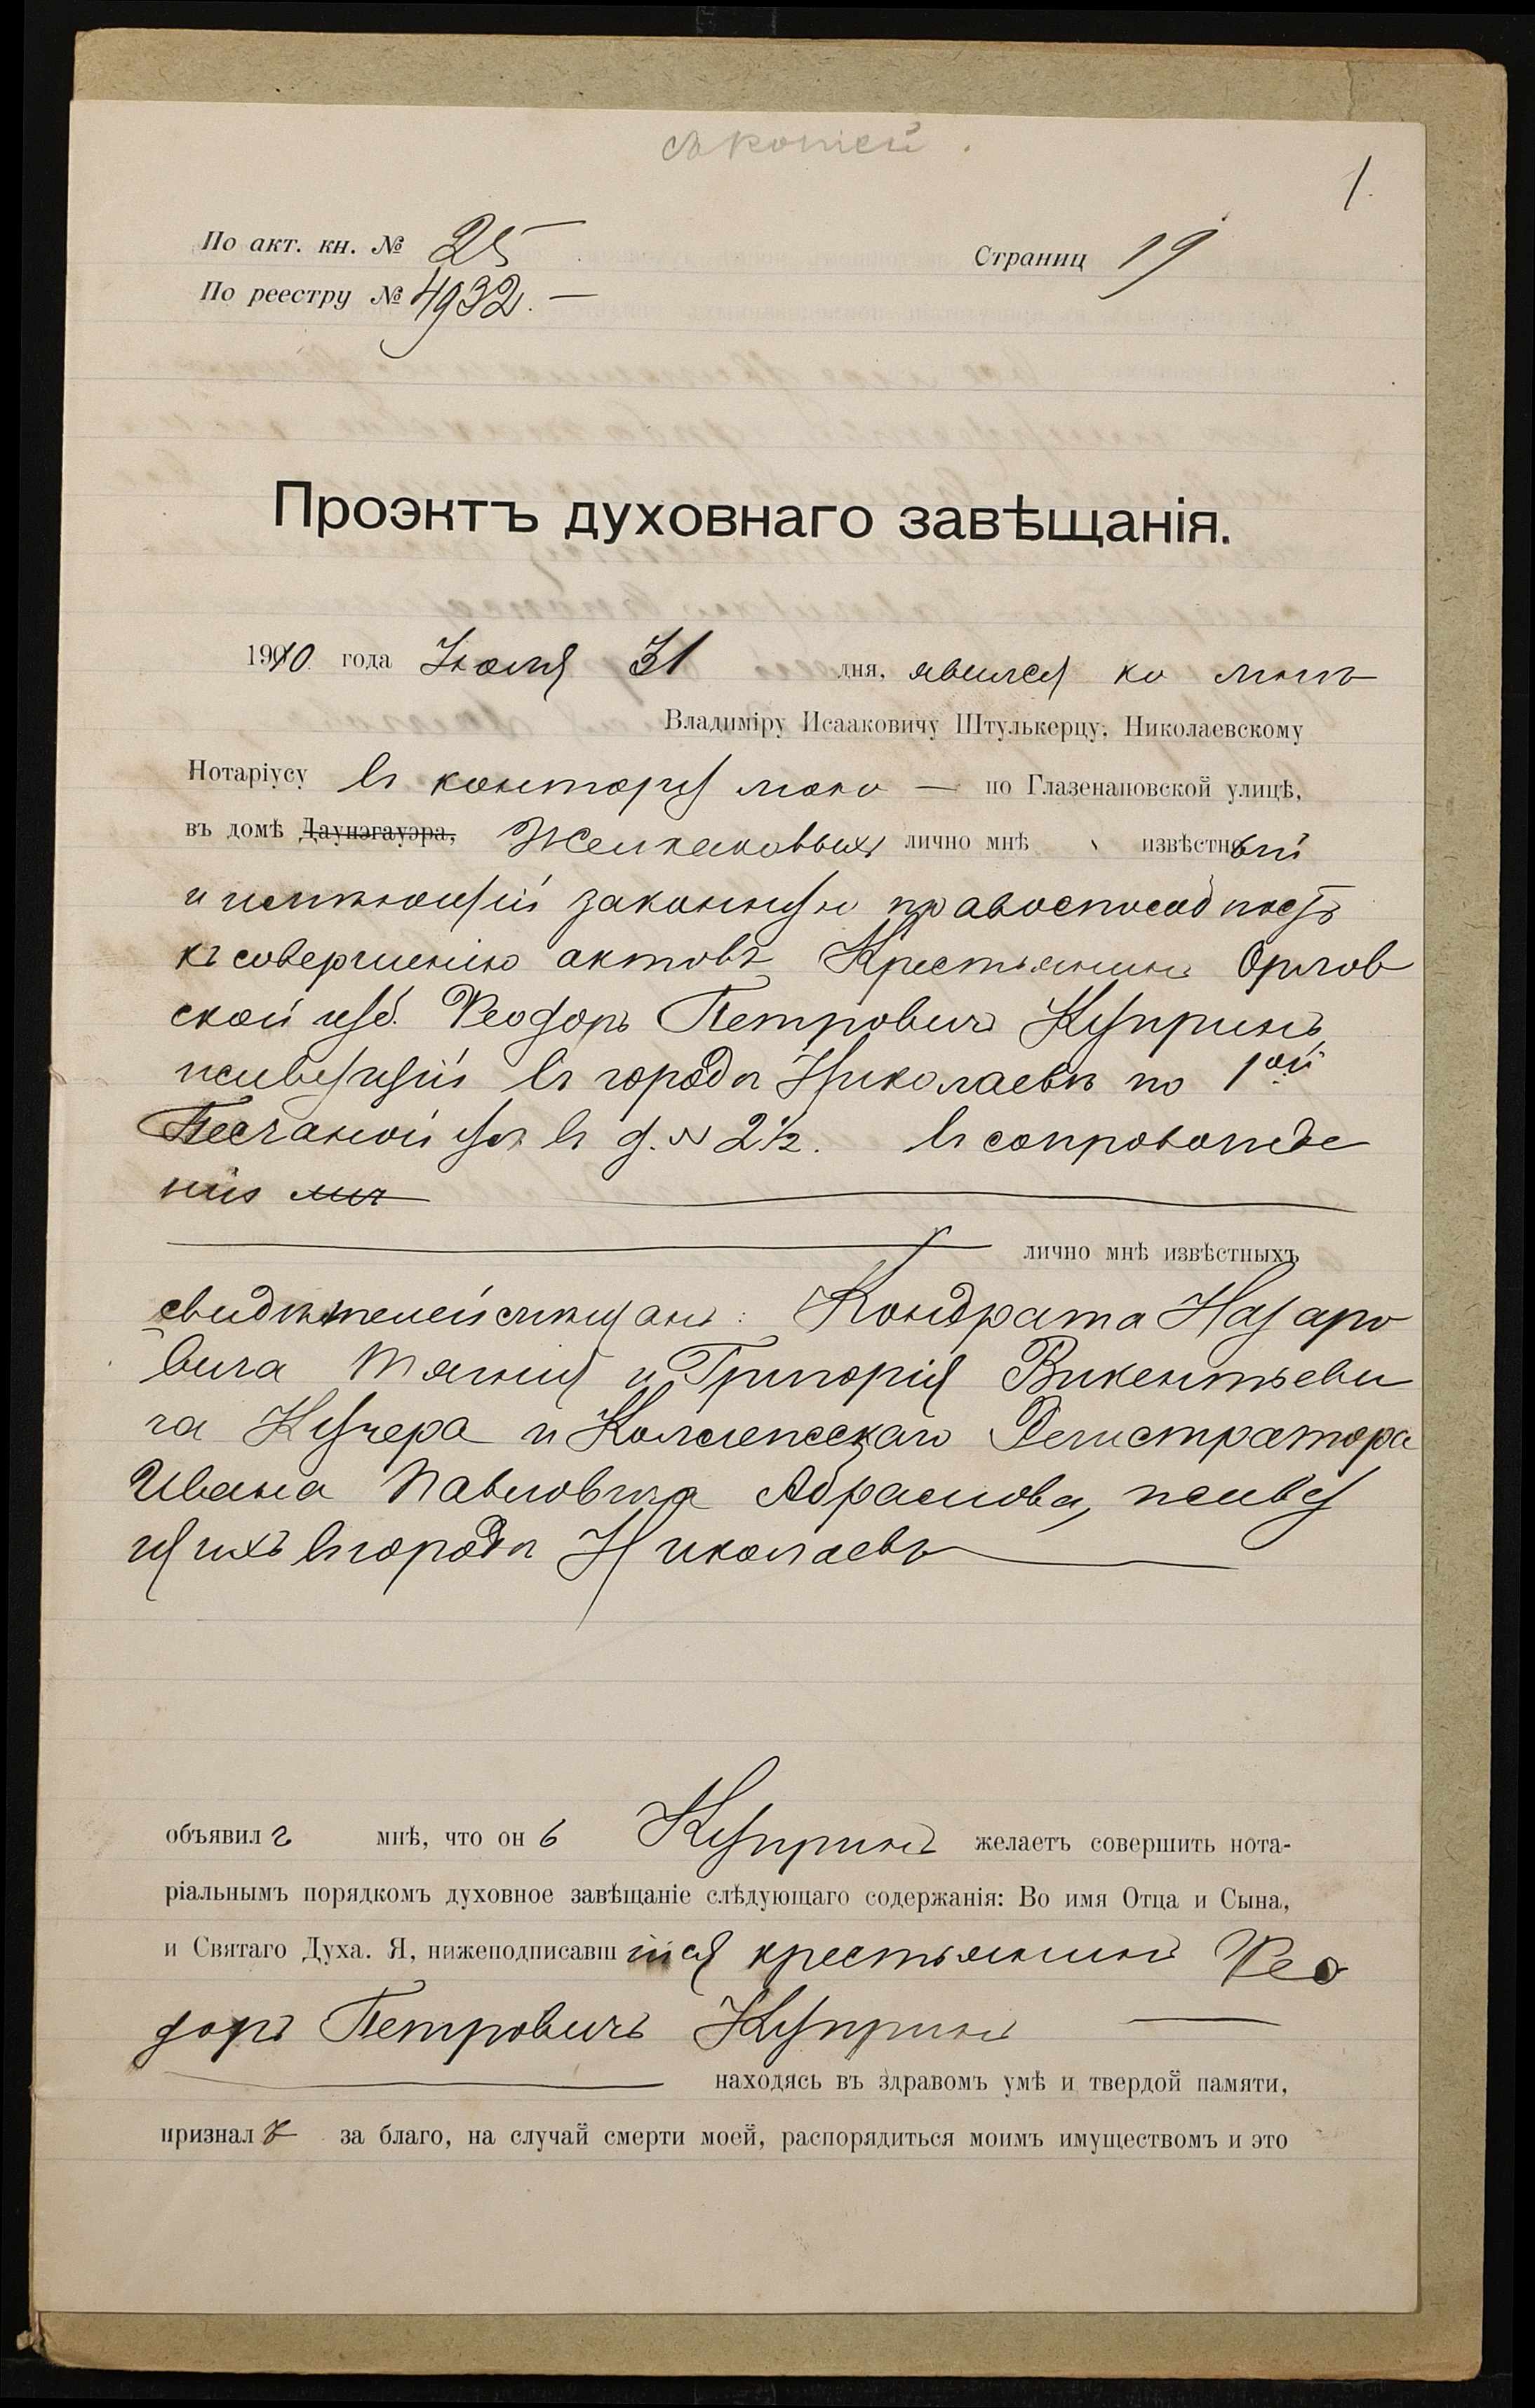 съ копіей.
1.
По акт. кн. № 25
Страниц 19
По реестру № 4932.—
Проэктъ духовнаго завѣщанія.
1910 года Іюля 31 дня, явился ко мнѣ
Владиміру Исааковичу Штулькерцу, Николаевскому
Нотаріусу въ контору мою — по Глазенаповской улицѣ,
въ домѣ Даунэгауэра, лично мнѣ извѣстный
и имѣющій законную правоспособность
къ совершенію актовъ Крестьянинъ Орлов
ской губ. Ѳеодоръ Петровичъ Купринъ,
живущій въ городѣ Николаевѣ по 1ой
Песчаной ул въ д. № 2½. въ сопровожде
ніи лич
лично мнѣ извѣстныхъ
свидѣтелей мѣщанъ: Кондрата Назаро
вича Тягній и Григорія Викентьеви
ча Кучера и Коллежскаго Регистратора
Ивана Павловича Абрамова, живу
щихъ въ городѣ Николаевѣ
объявилъ мнѣ, что онъ Купринъ желаетъ совершить нота-
ріальнымъ порядкомъ духовное завѣщаніе слѣдующаго содержанія: Во имя Отца и Сына,
и Святаго Духа. Я, нижеподписавшійся крестьянинъ Ѳео
доръ Петровичъ Купринъ
находясь въ здравомъ умѣ и твердой памяти,
призналъ за благо, на случай смерти моей, распорядиться моимъ имуществомъ и это